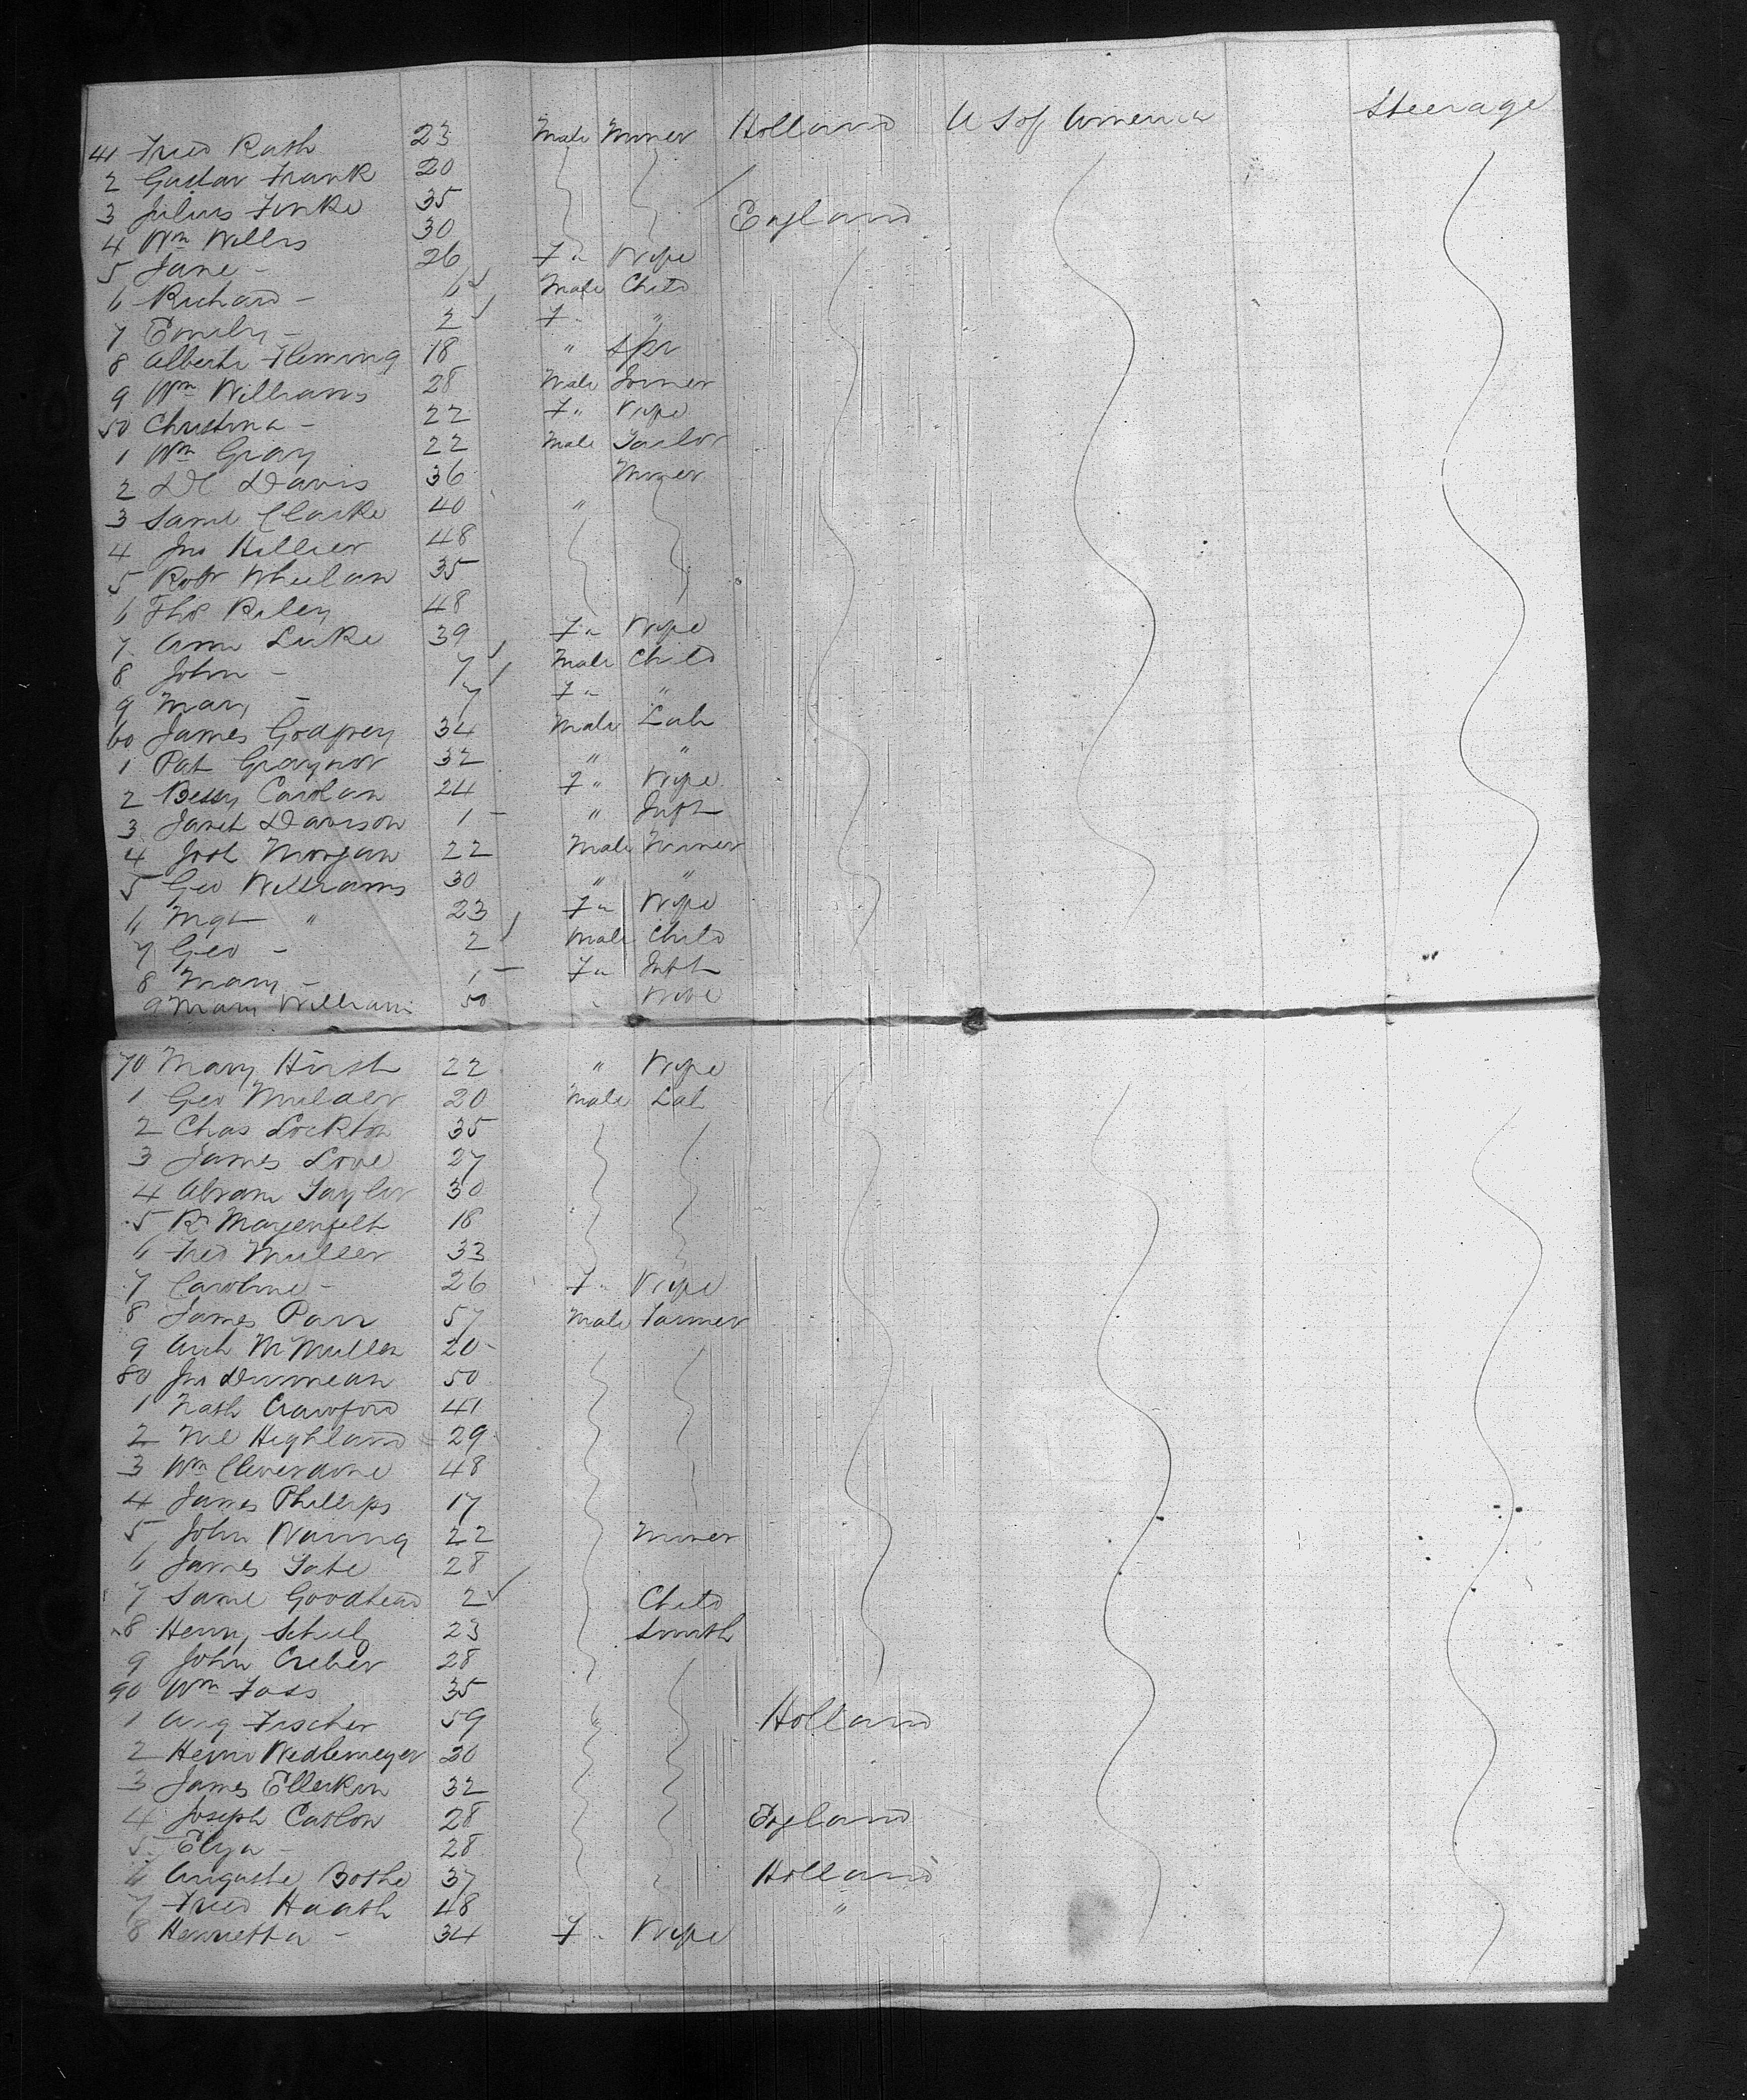 41 Fred Rath 23 Male Miner Holland U S of America Steerage
2 Gustav Frank 20
3 Julius Finke 35
4 Wm Willis 30 England
5 Jane - 26 F " Wife
6 Richard - 6 Male Child
7 Emily - 2 F " "
8 Alberta Fleming 18 " Spr
9 Wm Williams 28 Male Joiner
50 Christina - 22 F " Wife
1 Wm Gray 22 Male Tailor
2 Dl Davis 36 Miner
3 Saml Clarke 40 "
4 Jno Hillier 48
5 Robt Wheelan 35
6 Thos Riley 48
7 Ann Luke 39 F " Wife
8 John - 7 Male Child
9 Mary - 7 F " "
60 James Godfrey 34 Male Lab
1 Pat Graynor 32 " "
2 Bessy Carolan 24 F " Wife
3 Janet Davison 1 - " Inft
4 Josh Morgan 22 Male Miner
5 Geo Williams 30 " "
6 Mgt " 23 F " Wife
7 Geo - 2 Male Child
8 Mary - 1 - F " Inft
9 Mary William 50 " Wife
70 Mary Hirst 22 " Wife
1 Geo Mulder 20 Male Lab
2 Chas Lockton 35
3 James Love 27
4 Abram Taylor 30
5 R Mayenfelt 18
6 Fred Muller 33
7 Caroline - 26 F " Wife
8 James Parr 57 Male Farmer
9 Arch McMullen 20
80 Jno Dunnean 50
1 Nath Crawford 41
2 Ml Highland 29
3 Wm Cleverdone 48
4 James Phillips 17
5 John Waring 22 Miner
6 James Tate 28
7 Saml Goodhead 2 Child
8 Henry Schulz 23 Smith
9 John Creber 28
90 Wm Foss 35
1 Aug Fischer 59 " Holland
2 Heinr Wedlemeyer 20
3 James Ellerkin 32
4 Joseph Catlow 28 England
5 Elza - 28
6 Auguste Bothe 37 Holland
7 Fred Haath 48 "
8 Henrietta - 34 F " Wife